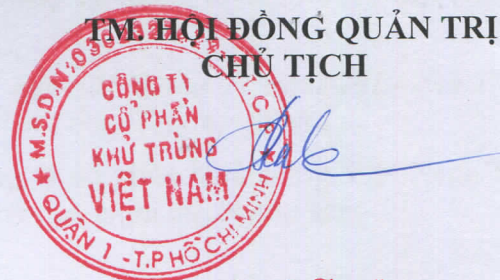 TM. HỘI ĐỒNG QUẢN TRỊ
CHỦ TỊCH
CÔNG TY
CỔ PHẦN
KHỬ TRÙNG
VIỆT NAM
QUẬN 1 - T.P HỒ CHÍ MINH